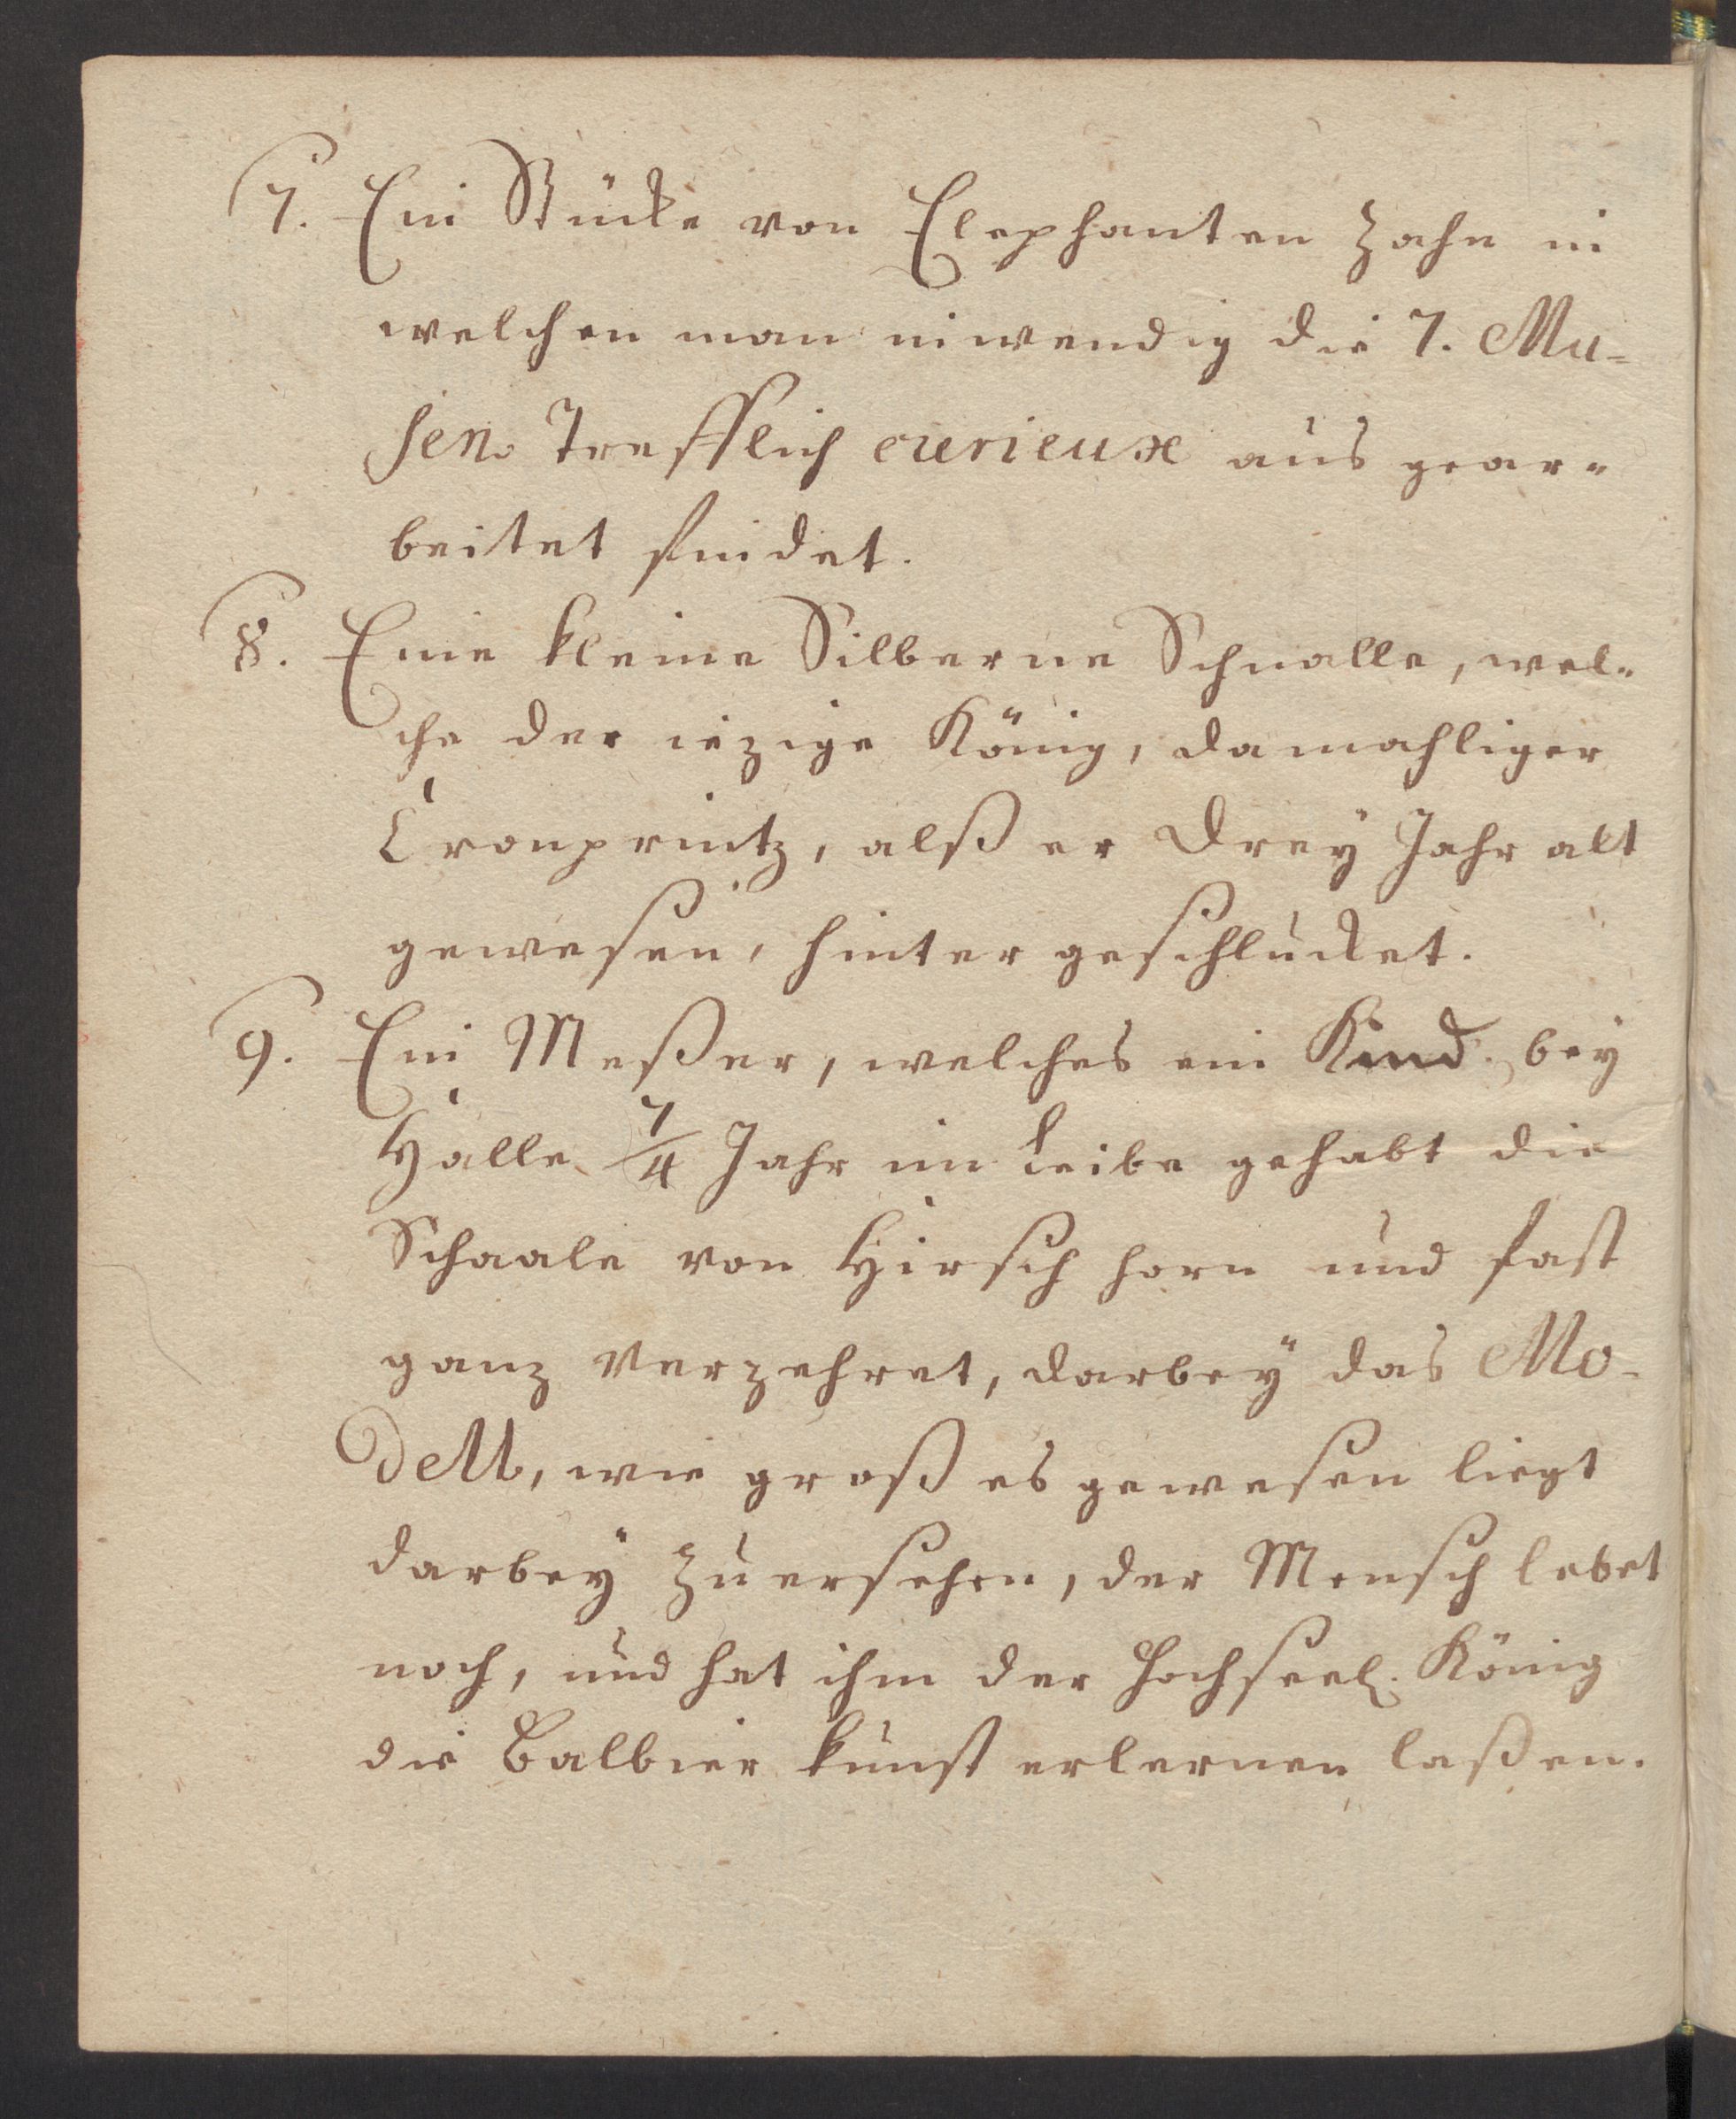 7. Ein Stücke von Elephanten Zahn in
welchen man inwendig die 7. Mu-
sen Trefflich curieux aus gear-
beitet findet.
8. Eine kleine Silberne Schnalle, wel-
che der iezige König, damahliger
Cronprintz, alß er Drey Jahr alt
gewesen, hinter geschlucket.
9. Ein Meßer, welches ein Kind bey
Halle 7/4 Jahr im Leibe gehabt die
Schaale von Hirsch horn und fast
ganz verzehret, darbeÿ das Mo-
dell, wie groß es gewesen liegt
darbeÿ zu ersehen, der Mensch lebet
noch, und hat ihm der Hochseel. König
die Balbier kunst erlernen laßen.